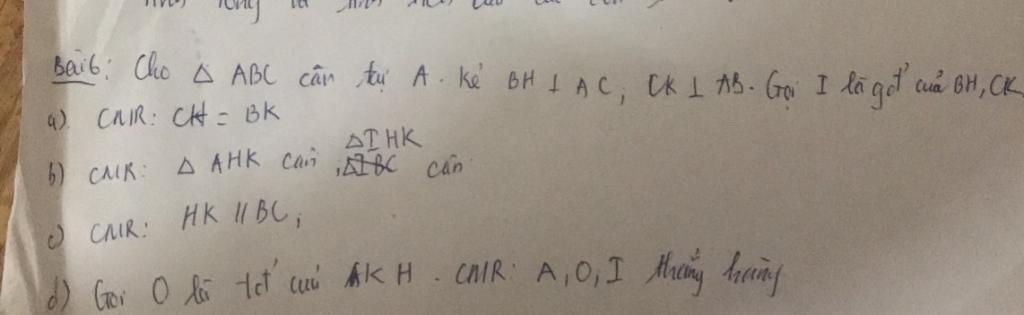 Bài 6: Cho △ ABC cân tại A. Kẻ BH ⊥ AC, CK ⊥ AB. Gọi I là gđ của BH, CK
a) CMR: CH = BK
b) CMR: △ AHK cân, △IHK cân
c) CMR: HK // BC,
d) Gọi O là tđ của KH. CMR: A, O, I thẳng hàng